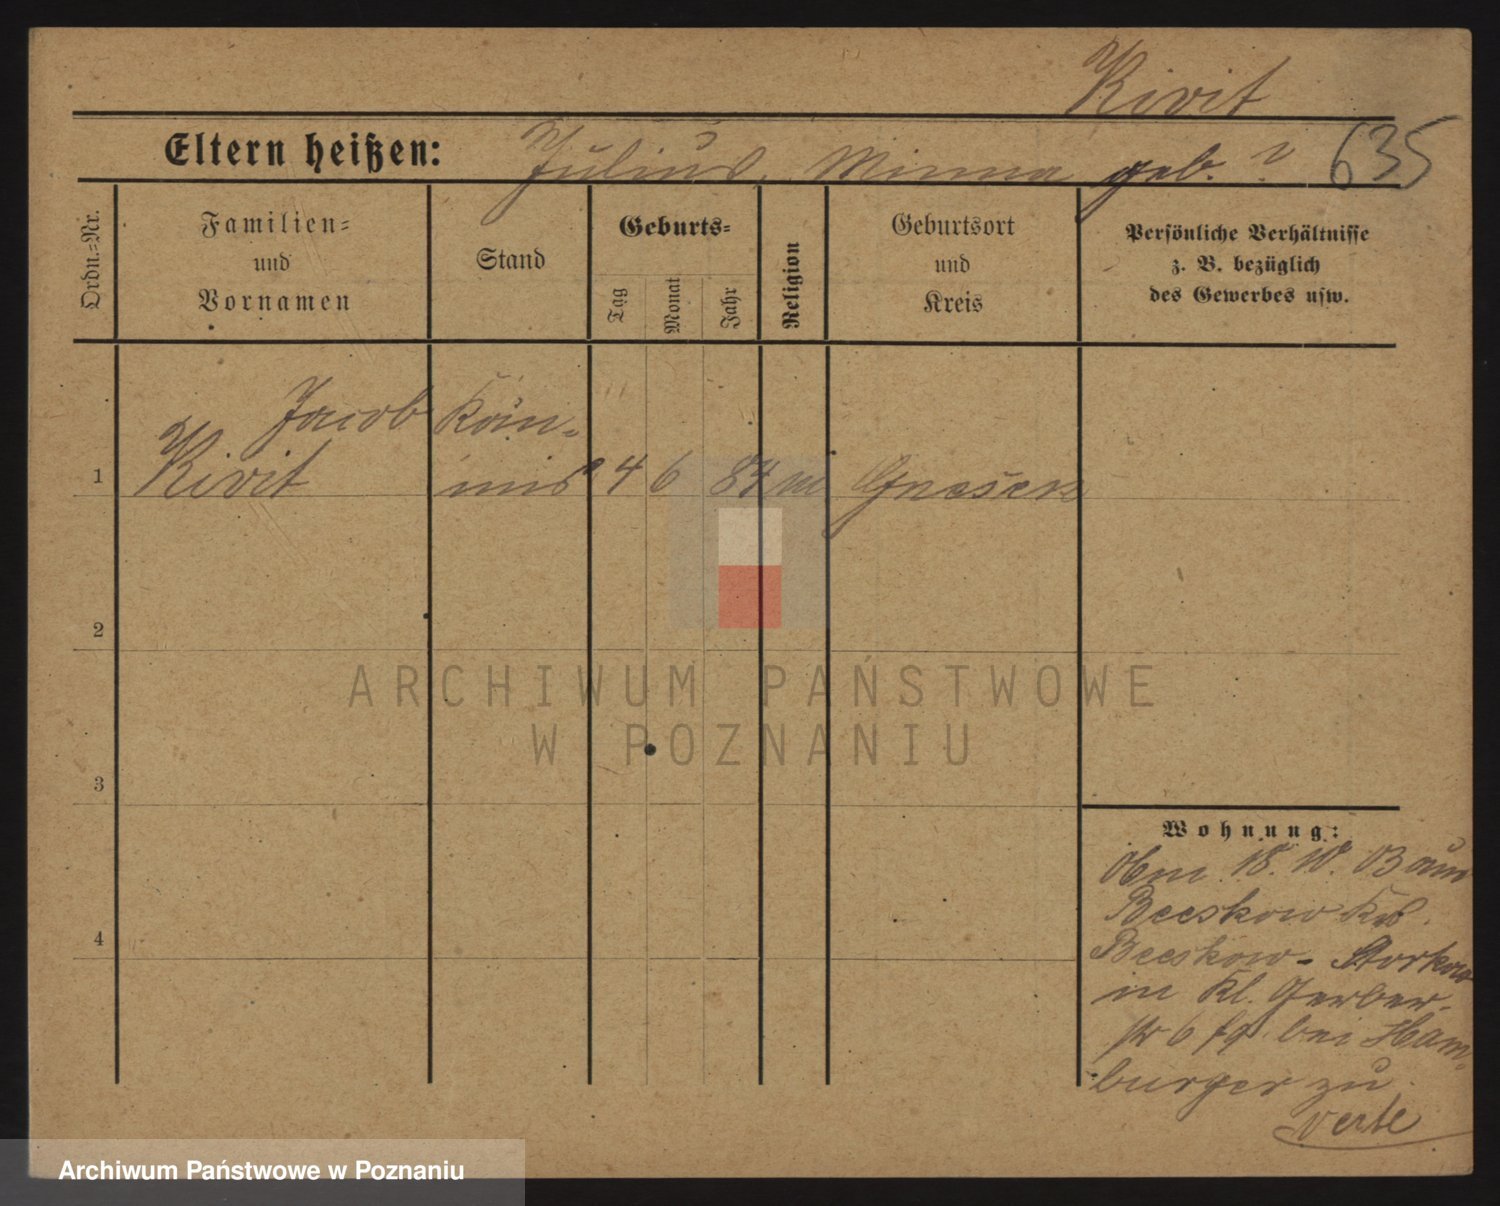 Kivit
Eltern heißen: Julius, Minna geb. ?
635
Ordn.=Nr.
Familien=
und
Vornamen
Stand
Geburts=
Tag
Monat
Jahr
Religion
Geburtsort
und
Kreis
Persönliche Verhältnisse
z. B. bezüglich
des Gewerbes usw.
Jacob
1 Kivit
4 6 84 m Gnesen
2
ARCHIWUM PAŃSTWOWE
W POZNANIU
3
Wohnung:
18. 10. 03 aus
Beeskow Krs.
4
Beeskow-Storkow
in Kl. Gerber-
str 6 bei Ham-
burger zu
verte
Archiwum Państwowe w Poznaniu